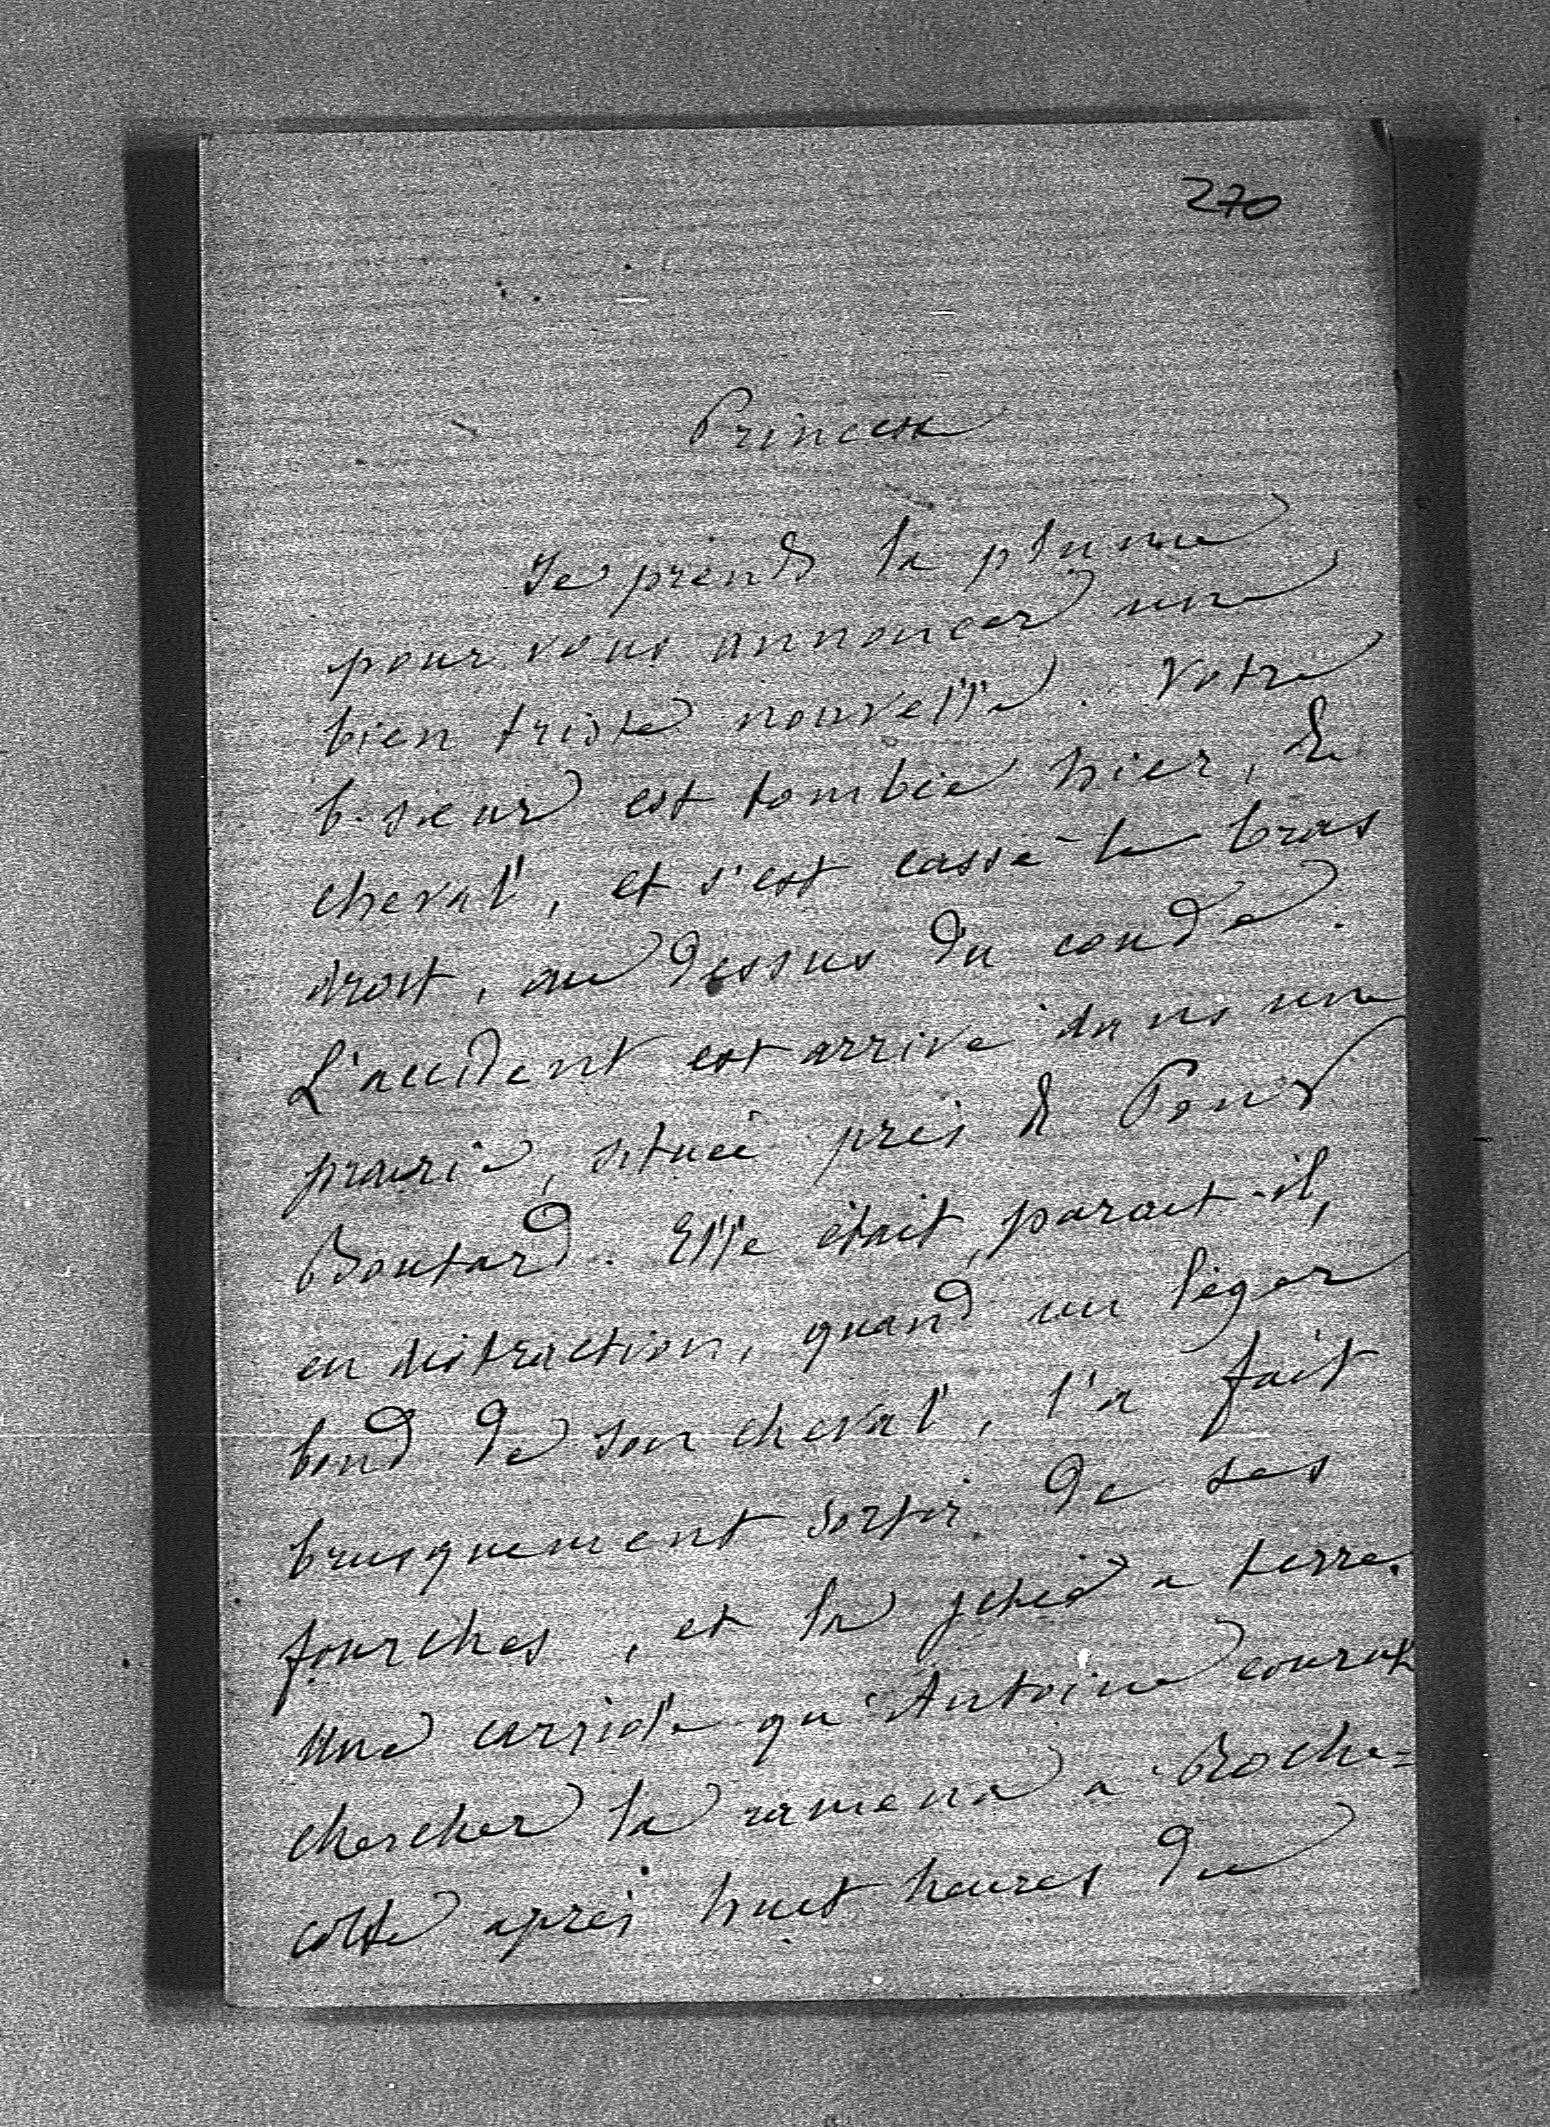 270
Princesse
Je prends la plume
pour vous annoncer une
bien triste nouvelle. Votre
b. sœur est tombée hier, de
cheval, et s'est cassé le bras
droit, au dessus du coude.
L'accident est arrivé dans une
prairie, située près de Pont
Boutard. Elle était, parait-il,
en distraction, quand un léger
bond de son cheval, l'a fait
brusquement sortir de ses
fourches, et la jetée a terre.
Une carriole qu'Antoine courut
chercher la ramena a Roche=
cotte après huit heures du